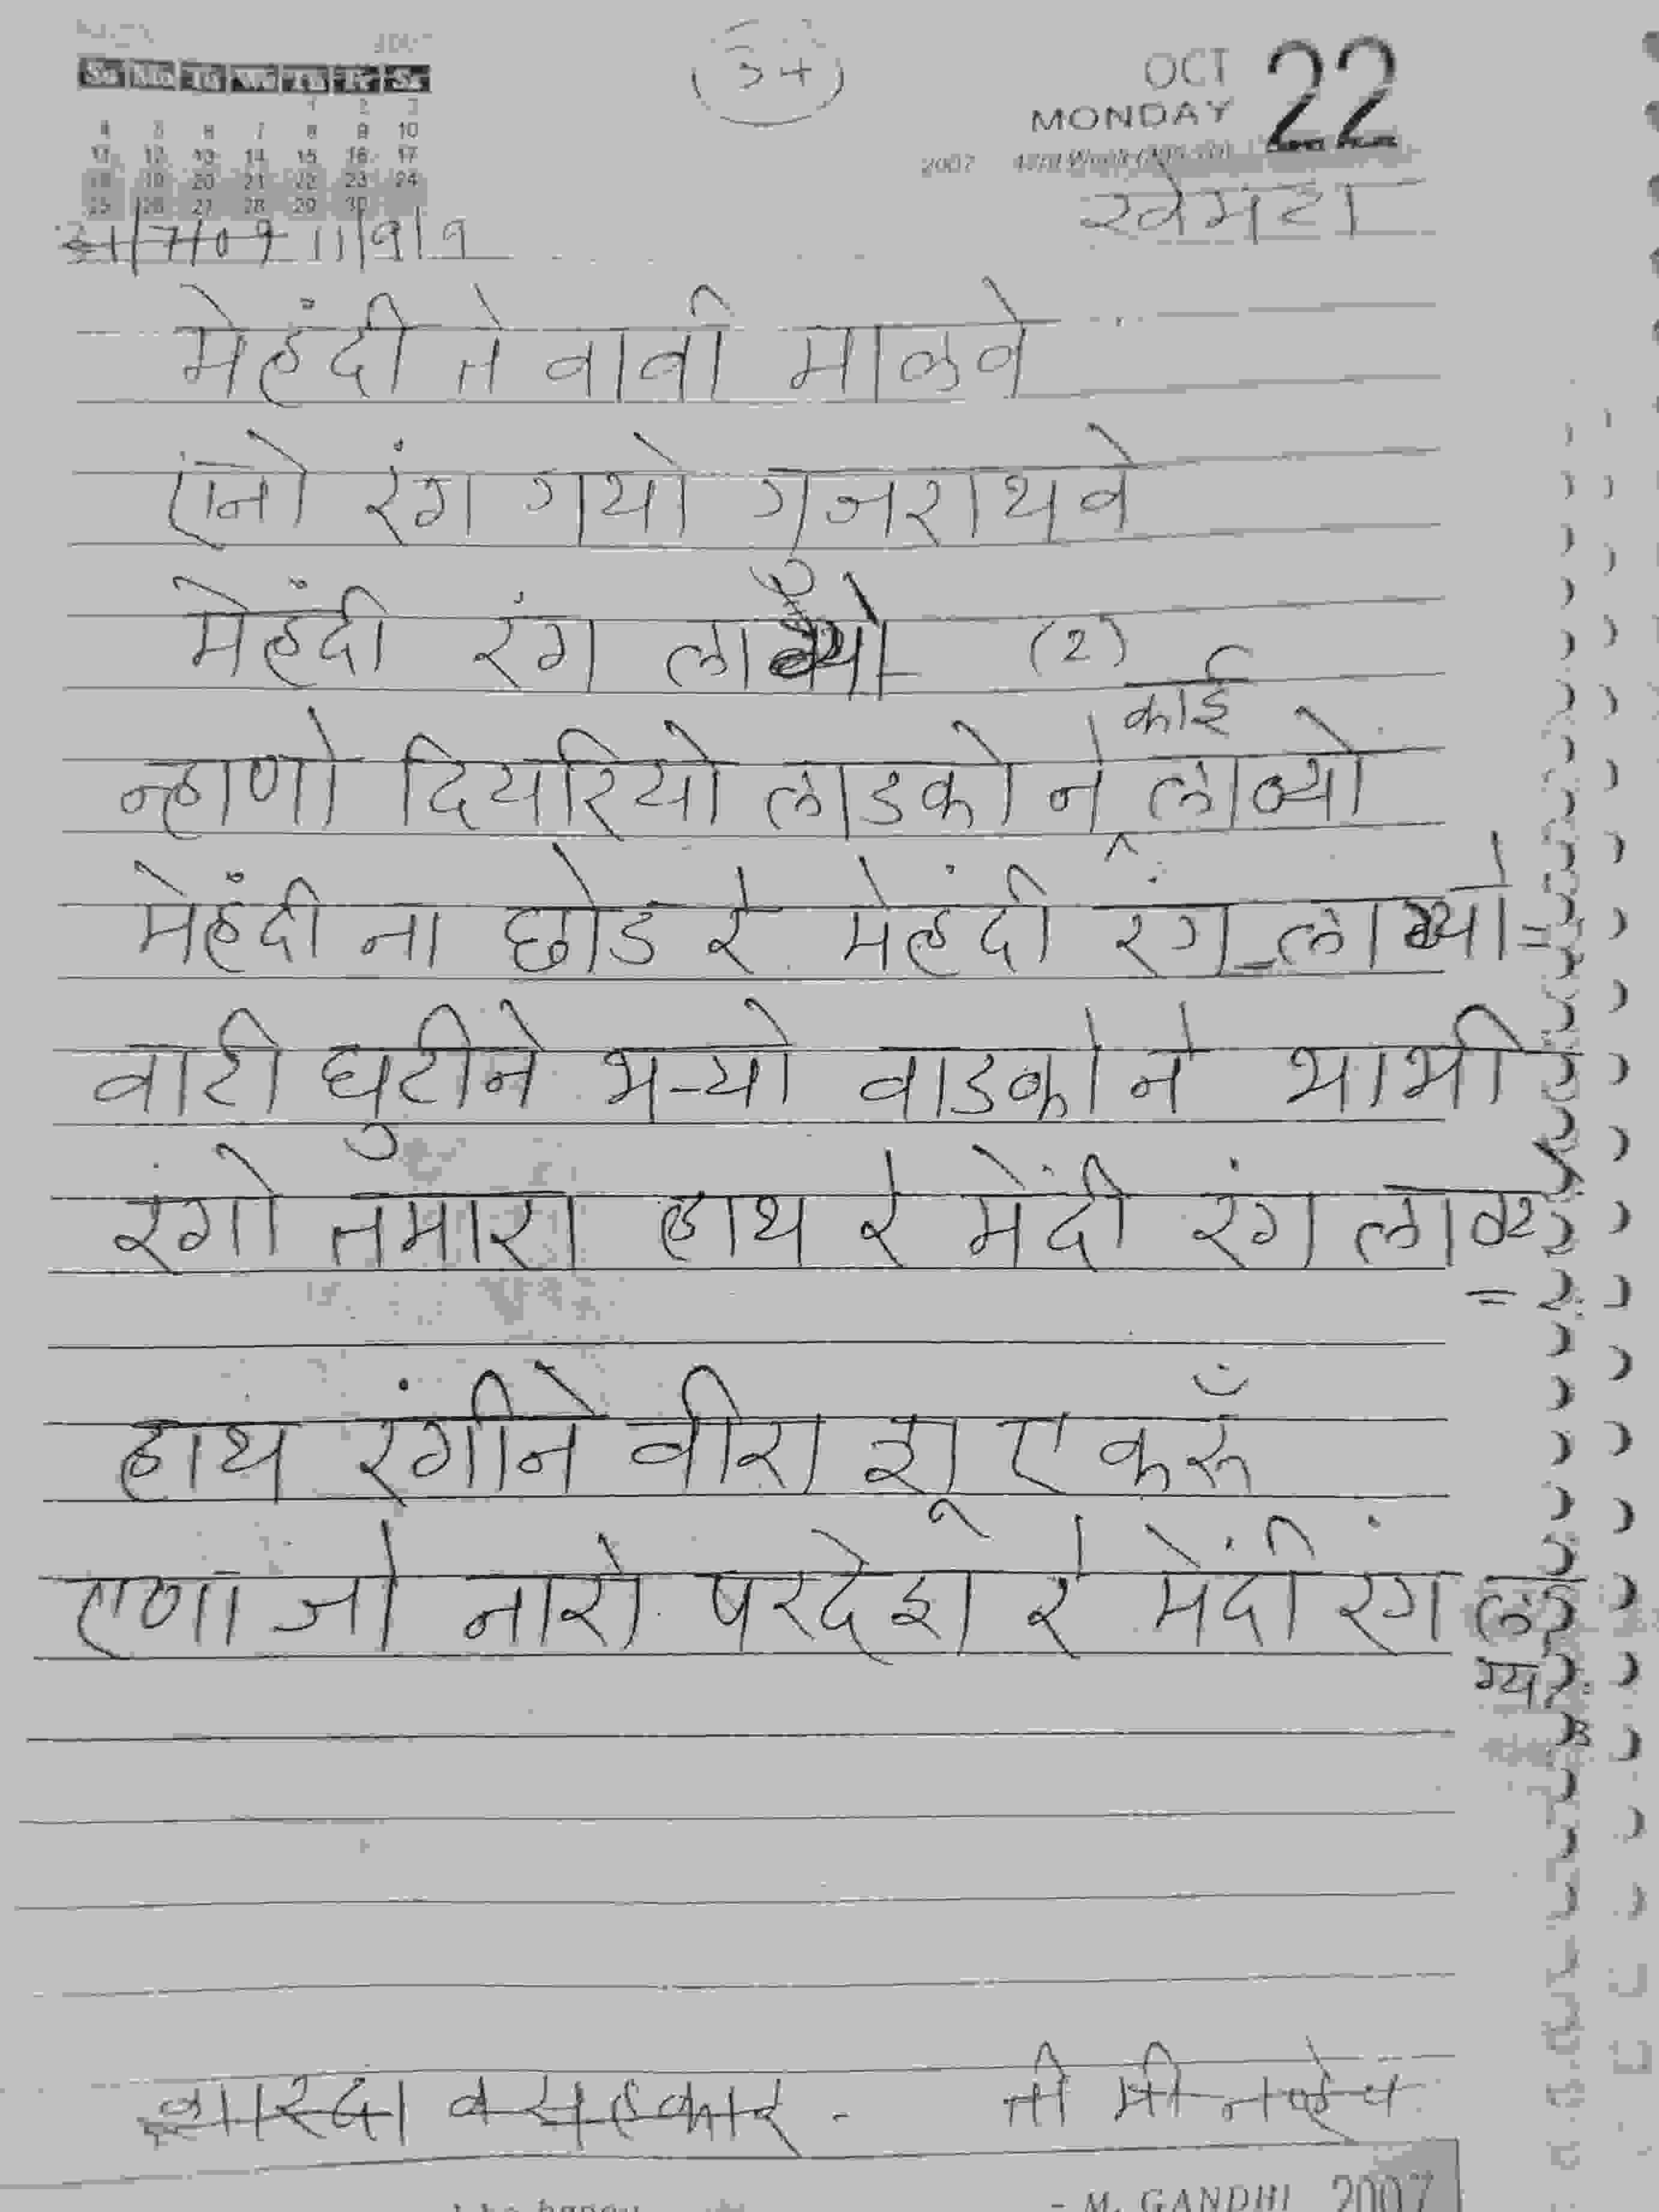 Su Mo Tu We Th Fr Sa
1 2 3
4 5 6 7 8 9 10
11 12 13 14 15 16 17
18 19 20 21 22 23 24
25 26 27 28 29 30
34
OCT 22
MONDAY
2007
खेमटा
31/7/09 11/9/9
मेहंदी ते वावी माळवे
एनो रंग गयो गुजराथवे
मेहंदी रंग लाग्यो (2)
काई
न्हाणो दियरियो लाडको ने लाव्यो
मेहंदी ना छोड रे मेहंदी रंग लाग्यो =
वाटी घुटीने भ-यो वाडको ने भाभी
रंगो तमारा हाथ रे मेंदी रंग लाग्यो
= 2
हाथ रंगीने वीरा शू ए करुँ
एणा जो नारो परदेश रे मेंदी रंग ला
ग्यो
शारदा व सहकार - ती मी नव्हेच
- M. GANDHI 2007